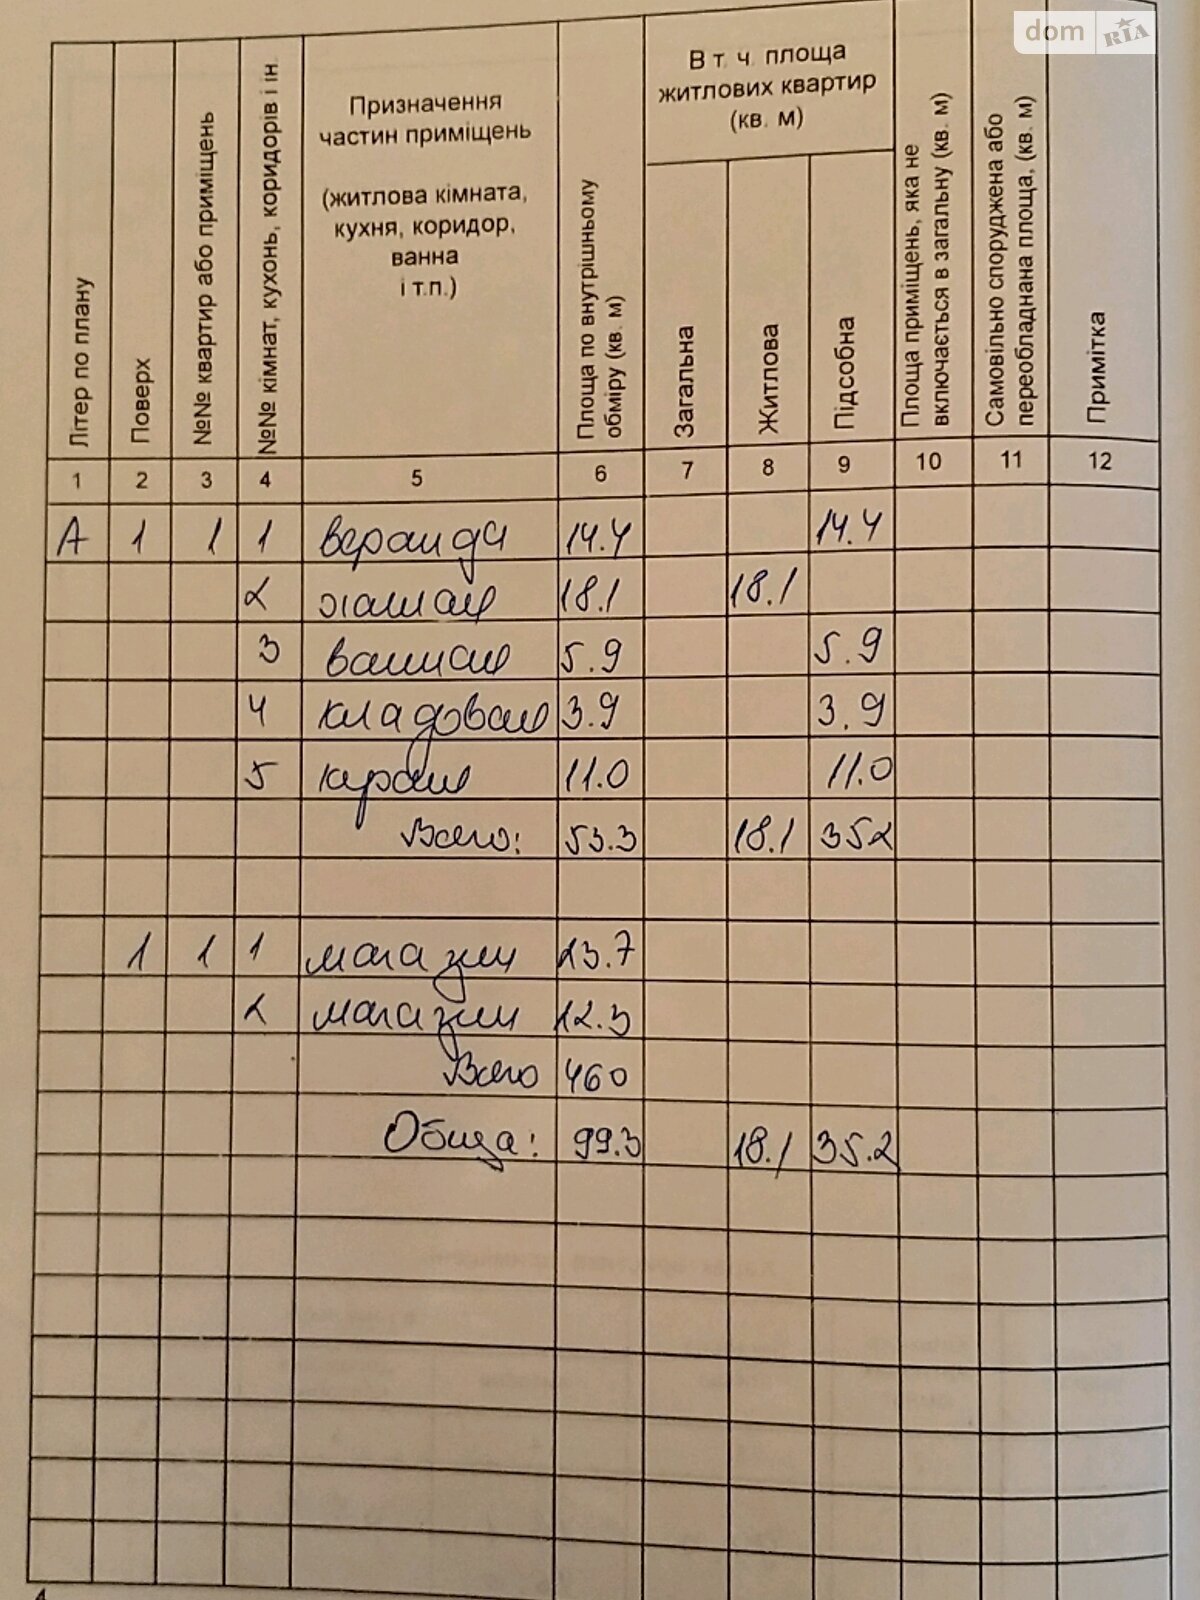 dom RIA
Літер по плану
Поверх
№№ квартир або приміщень
№№ кімнат, кухонь, коридорів і ін.
Призначення
частин приміщень
(житлова кімната,
кухня, коридор,
ванна
і т.п.)
Площа по внутрішньому
обміру (кв. м)
В т. ч. площа
житлових квартир
(кв. м)
Загальна
Житлова
Підсобна
Площа приміщень, яка не
включається в загальну (кв. м)
Самовільно споруджена або
переобладнана площа, (кв. м)
Примітка
1 2 3 4 5 6 7 8 9 10 11 12
А 1 1 1 веранда 14.4 14.4
2 жилая 18.1 18.1
3 ванная 5.9 5.9
4 кладовая 3.9 3.9
5 кухня 11.0 11.0
Всего: 53.3 18.1 352
1 1 1 магазин 23.7
2 магазин 12.3
Всего 460
Общая: 99.3 18.1 35.2
4